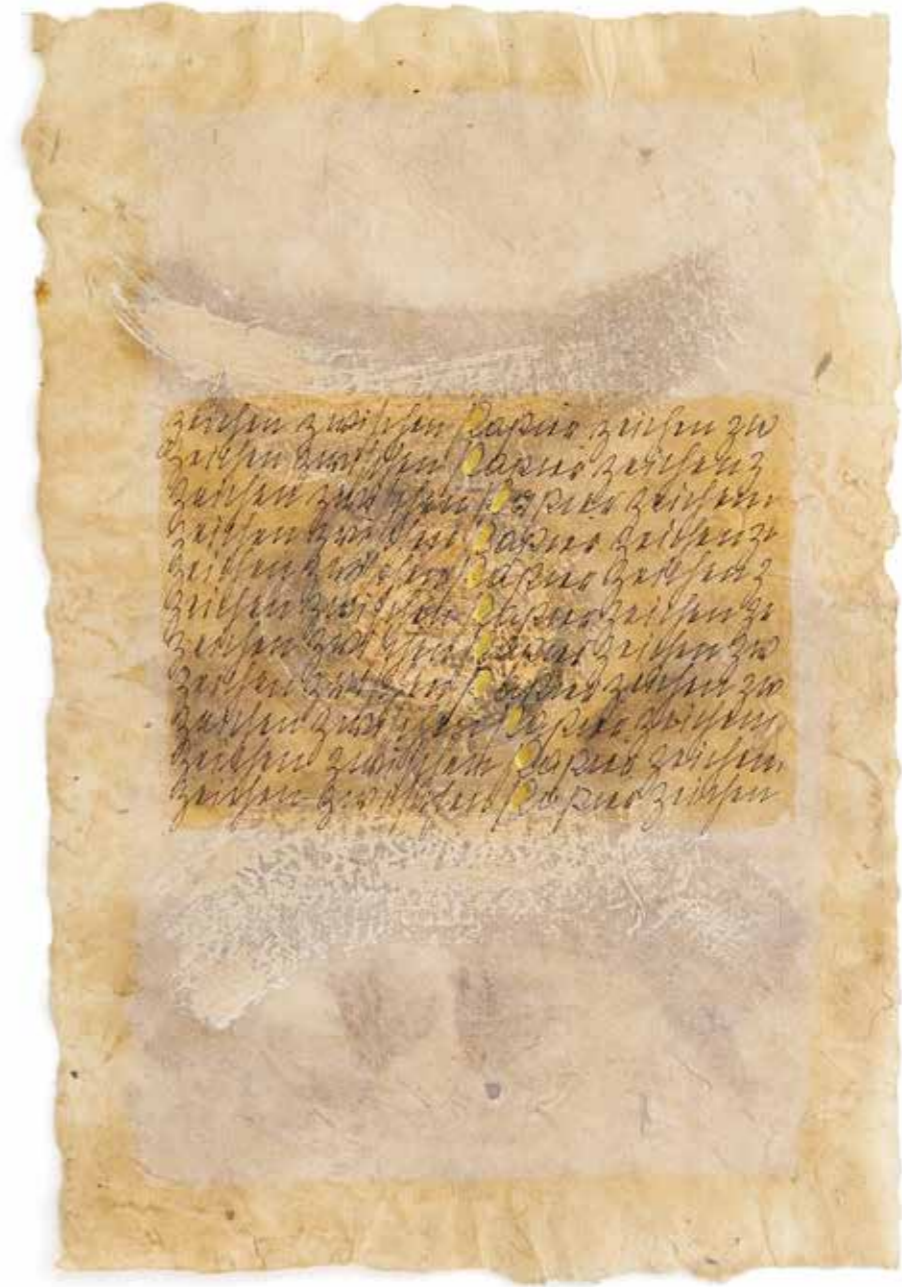 zeichen zwischen Papier zeichen zw
zeichen zwischen Papier zeichen z
zeichen zwischen Papier zeichen
zeichen zwischen Papier zeichen z
zeichen zwischen Papier zeichen z
zeichen zwischen Papier zeichen ze
zeichen zwischen Papier zeichen zw
zeichen zwischen Papier zeichen zw
zeichen zwischen Papier zeichen
zeichen zwischen Papier zeichen
zeichen zwischen Papier zeichen